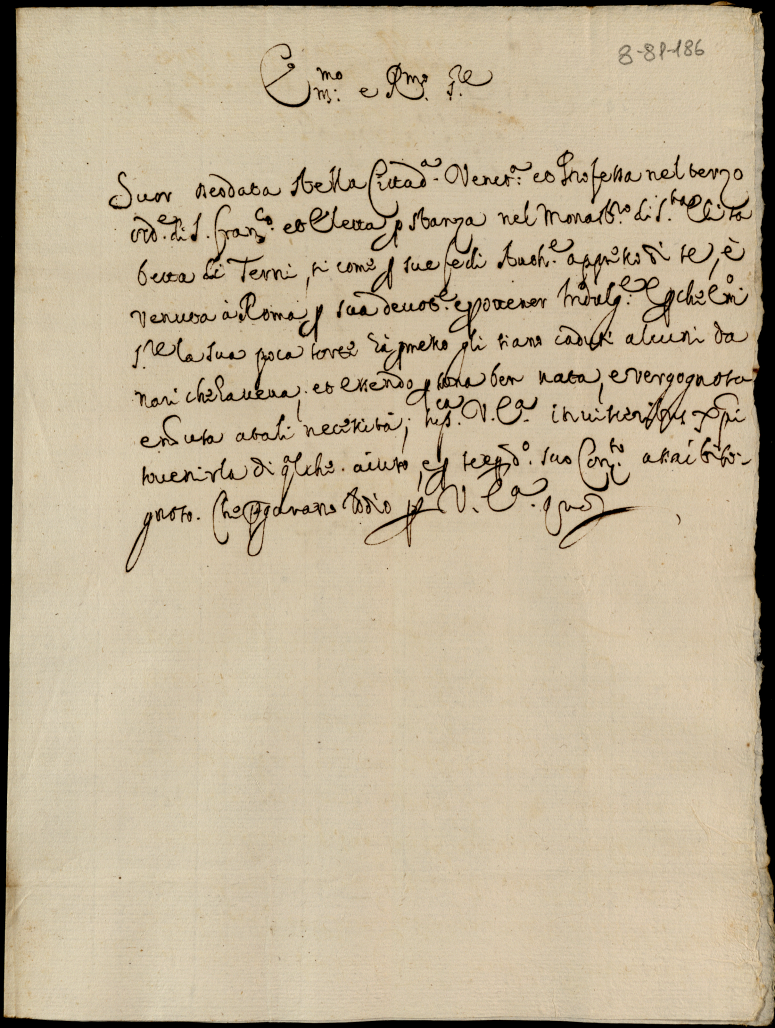 8-81-186
E.mo e R.mo S.re
Suor Deodata Stella Cittad.a Venet.a et Professa nel terzo
ord.e di S. Fran.co et eletta p stanza nel Monast.ro di S.ta Elisa
betta di Terni, si come p sue fedi auth.e appresso di se, è
venuta à Roma p sua devot.e e p ottener Indulg.e E pche E.mi
S.re la sua poca sorte hà pmesso gli siano caduti alcuni da
nari che haveva; et essendo psona ben nata, e vergognosa
e nõ usa a tali necessità; supp.ca V. E.a in visceribus Xpi
sovenirla di qlche aiuto, e p se, e p d.o suo Con.to assai biso-
gnoso. Che pgarano Iddio p V. E.a quã